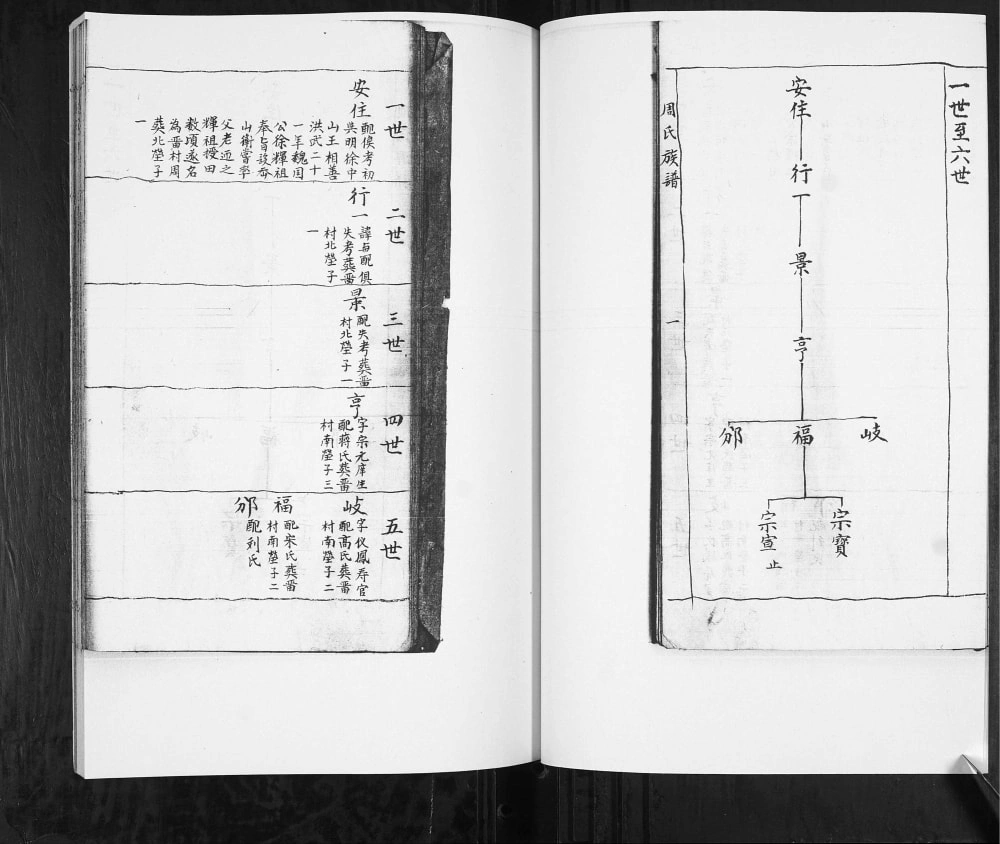 一世至六世
安住
行一
景
亨
岐
福
邠
宗寶
宗宣
止
周氏族譜
一
一世
安住
配侯考初
吳明徐中
山王相善
洪武二十
一年魏国
公徐輝祖
奉旨
山衛嘗率
父老迎之
輝祖授田
数頃遂名
為畨村周
葬北塋子
一
二世
行一
諱与配俱
失考葬畨
村北塋子
一
三世
景
配失考葬畨
村北塋子一
四世
亨
字宗元庠生
配蔣氏葬畨
村南塋子三
五世
岐
字仪鳳寿官
配高氏葬畨
村南塋子二
福
配宋氏葬畨
村南塋子二
邠
配刘氏